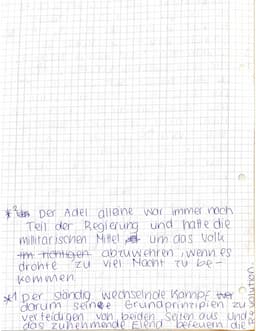 *² Der Adel alleine war immer noch
Teil der Regierung und hatte die
militärischen Mittel um das Volk
im richtigen abzuwehren, wenn es
drohte zu viel Macht zu be-
kommen.
*1 Der ständig wechselnde Kampf
darum seine Grundprinzipien zu
verteidigen von beiden Seiten aus und
das zunehmende Elend befeuern die